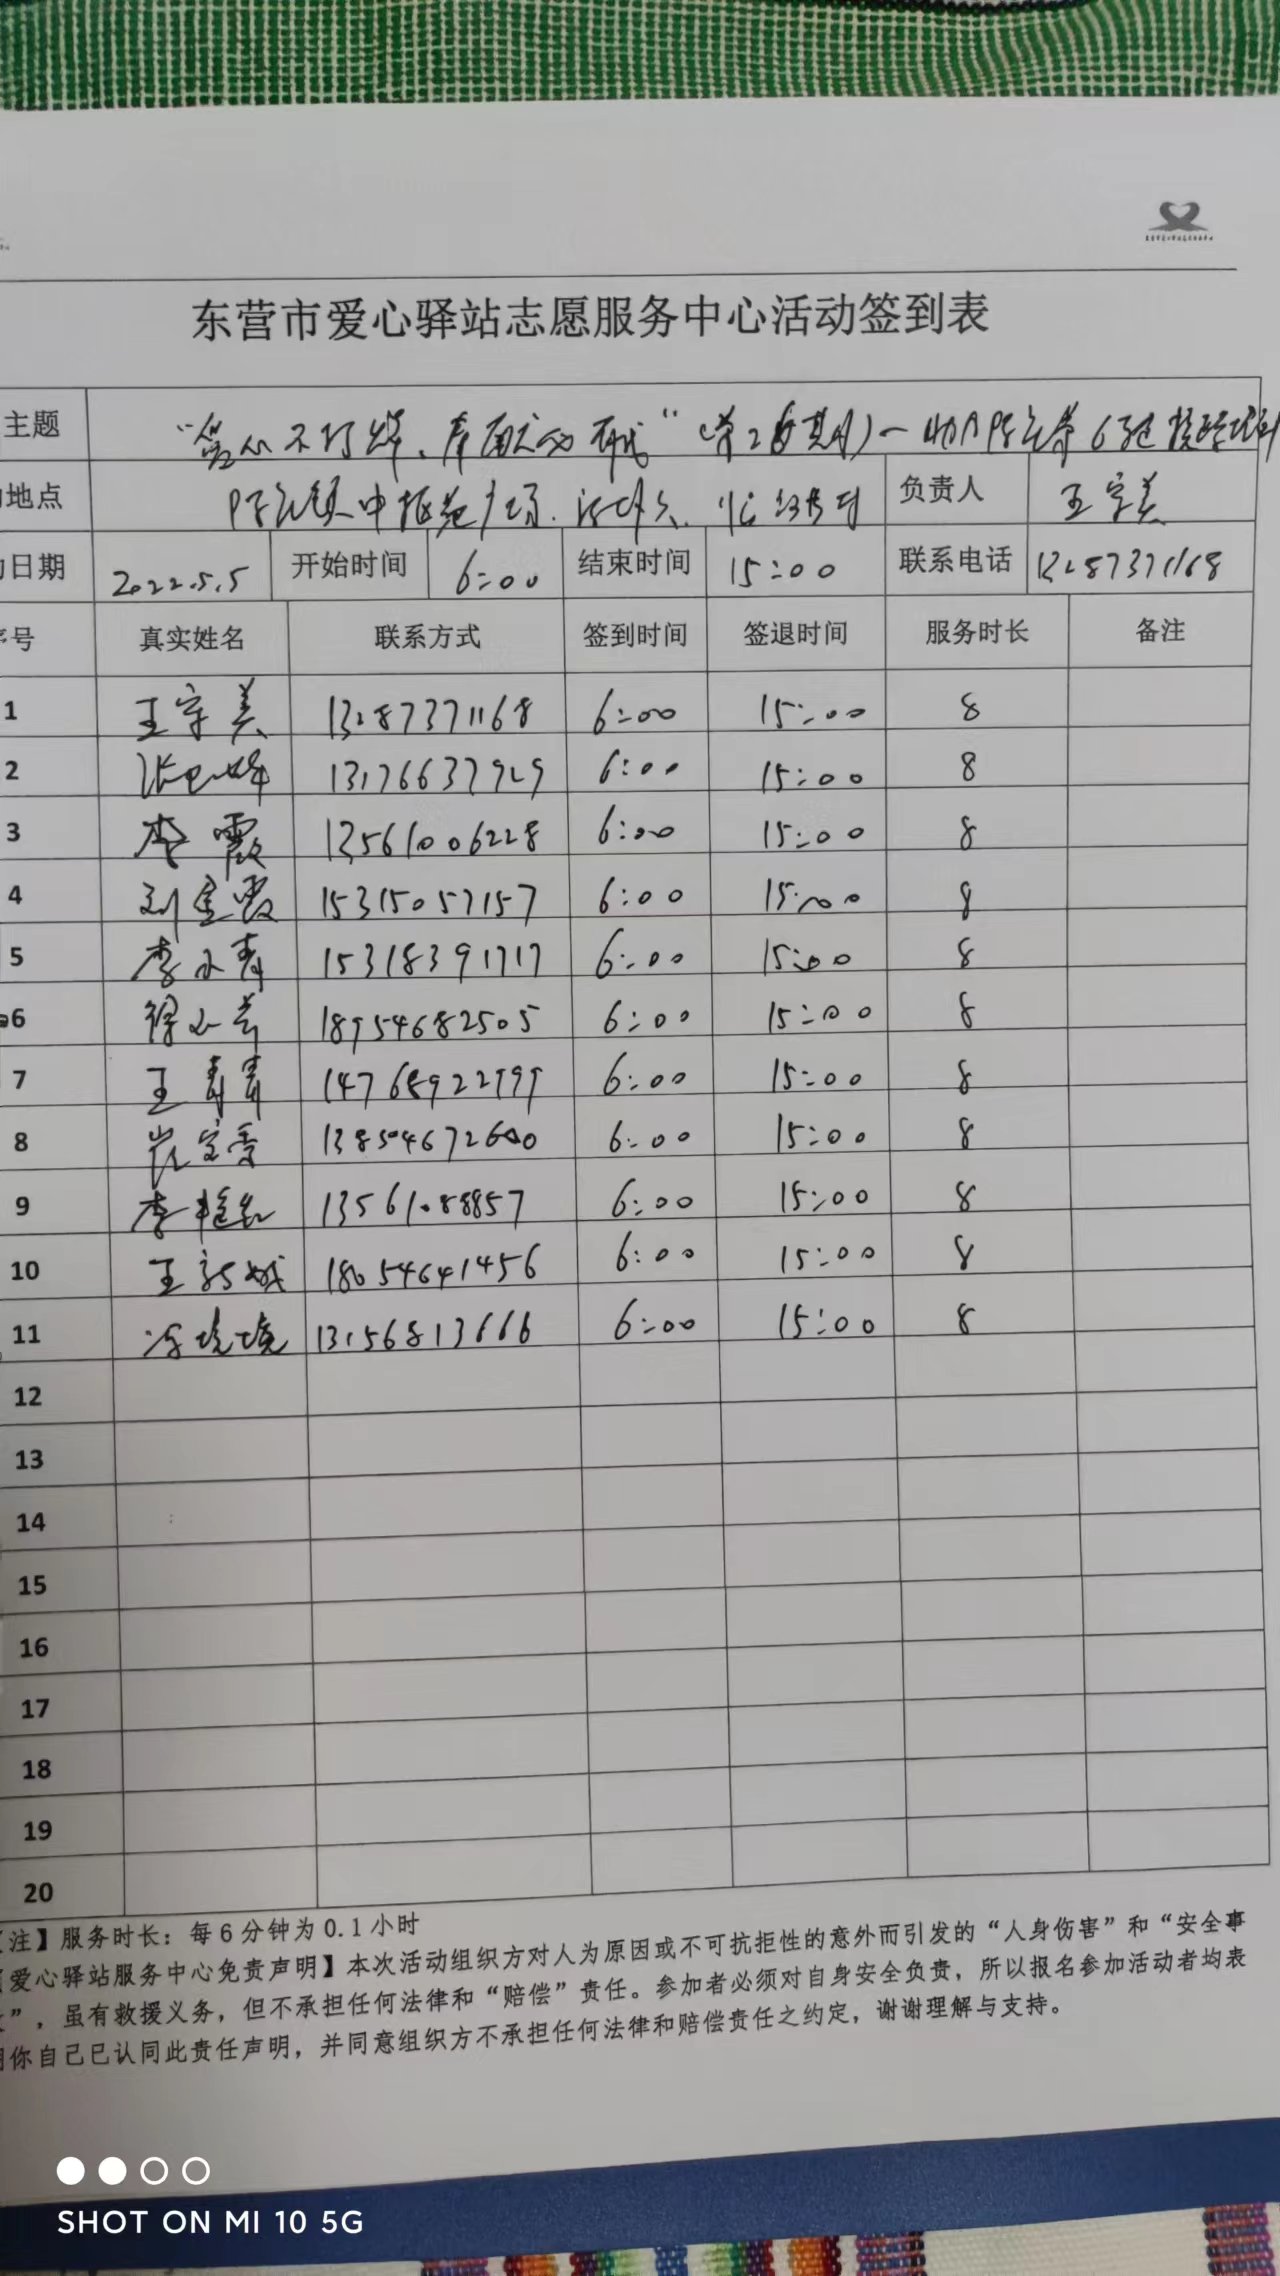 东营市爱心驿站志愿服务中心活动签到表
主题
地点 负责人 王字美
日期 2022.5.5 开始时间 6:00 结束时间 15:00 联系电话 13287371168
序号 真实姓名 联系方式 签到时间 签退时间 服务时长 备注
1 王字美 13287371168 6:00 15:00 8
2 13176637929 6:00 15:00 8
3 李霞 13561006228 6:00 15:00 8
4 刘宝霞 15315057157 6:00 15:00 8
5 李小青 15318391717 6:00 15:00 8
6 徐小芳 18954682505 6:00 15:00 8
7 王青青 14768922999 6:00 15:00 8
8 崔宝香 13854672600 6:00 15:00 8
9 13561088857 6:00 15:00 8
10 王新城 18054641456 6:00 15:00 8
11 13156813666 6:00 15:00 8
12
13
14
15
16
17
18
19
20
注】服务时长：每6分钟为0.1小时
爱心驿站服务中心免责声明】本次活动组织方对人为原因或不可抗拒性的意外而引发的“人身伤害”和“安全事
”，虽有救援义务，但不承担任何法律和“赔偿”责任。参加者必须对自身安全负责，所以报名参加活动者均表
明你自己已认同此责任声明，并同意组织方不承担任何法律和赔偿责任之约定，谢谢理解与支持。
SHOT ON MI 10 5G